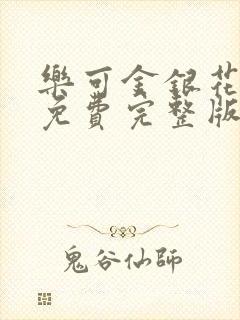 樂可金銀花
免費完整版
鬼谷仙師